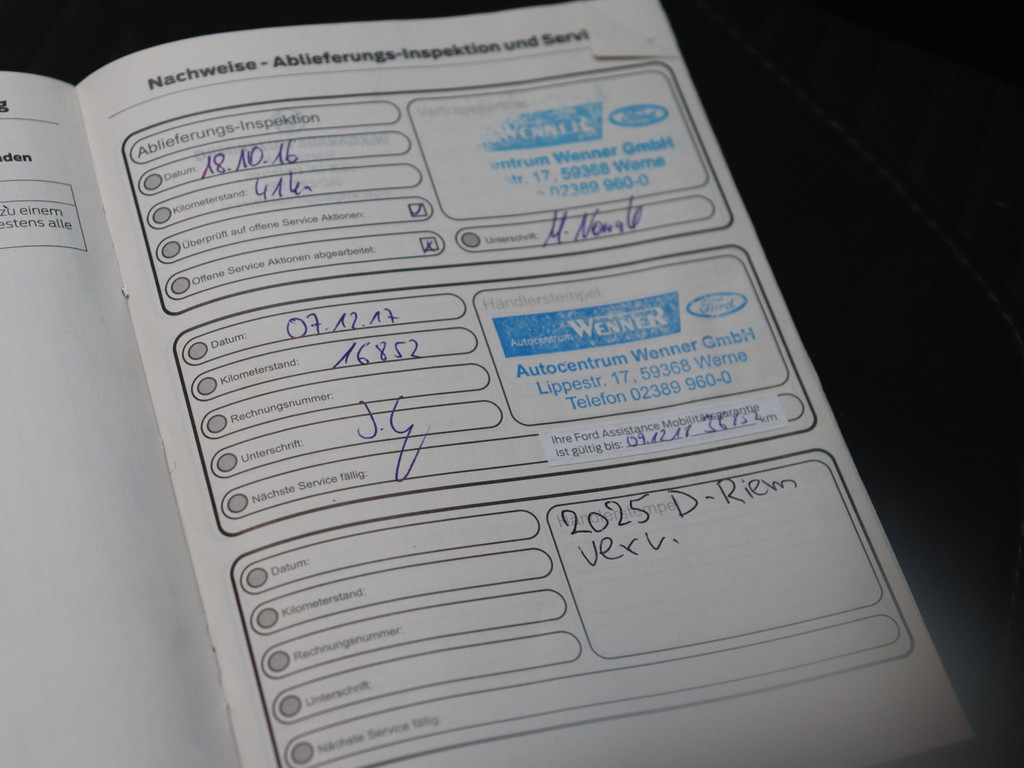 g
nden
zu einem
estens alle
Nachweise - Ablieferungs-Inspektion und Servi
Ablieferungs-Inspektion
Datum: 18.10.16
Kilometerstand: 41km
Überprüft auf offene Service Aktionen:
Offene Service Aktionen abgearbeitet:
WENNER Ford
entrum Wenner GmbH
str. 17, 59368 Werne
02389 960-0
Unterschrift:
Datum: 07.12.17
Kilometerstand: 16852
Rechnungsnummer:
Unterschrift: J.G
Nächste Service fällig:
Händlerstempel
Autocentrum WENNER Ford
Autocentrum Wenner GmbH
Lippestr. 17, 59368 Werne
Telefon 02389 960-0
Ihre Ford Assistance Mobilitätsgarantie
ist gültig bis: km
Datum:
Kilometerstand:
Rechnungsnummer:
Unterschrift:
Nächste Service fällig:
Händlerstempel
2025 D-Riem
verv.